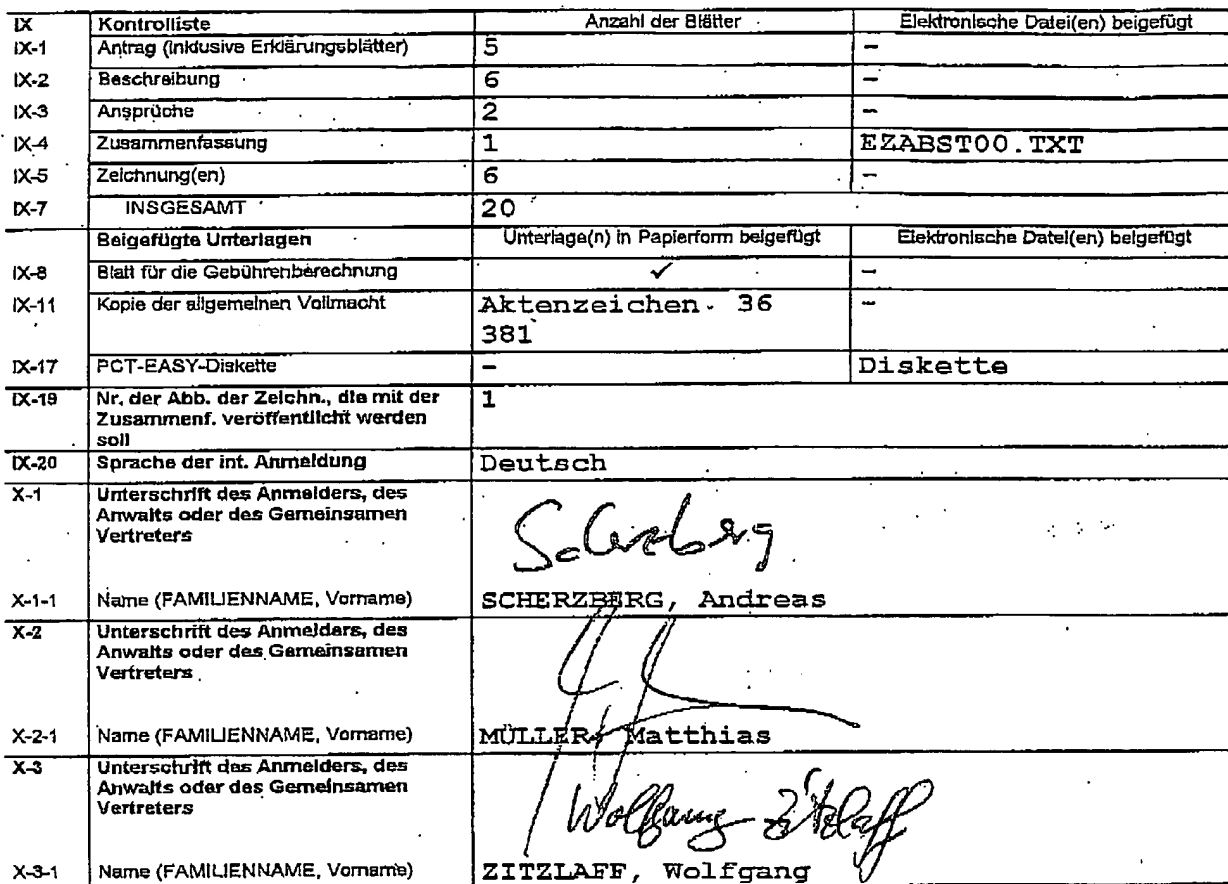 IX Kontrolliste Anzahl der Blätter Elektronische Datei(en) beigefügt
IX-1 Antrag (inklusive Erklärungsblätter) 5 –
IX-2 Beschreibung 6 –
IX-3 Ansprüche 2 –
IX-4 Zusammenfassung 1 EZABST00.TXT
IX-5 Zeichnung(en) 6 –
IX-7 INSGESAMT 20
Beigefügte Unterlagen Unterlage(n) in Papierform beigefügt Elektronische Datei(en) beigefügt
IX-8 Blatt für die Gebührenberechnung ✓ –
IX-11 Kopie der allgemeinen Vollmacht Aktenzeichen 36 –
381
IX-17 PCT-EASY-Diskette – Diskette
IX-19 Nr. der Abb. der Zeichn., die mit der 1
Zusammenf. veröffentlicht werden
soll
IX-20 Sprache der int. Anmeldung Deutsch
X-1 Unterschrift des Anmelders, des
Anwalts oder des Gemeinsamen
Vertreters
Scherzberg
X-1-1 Name (FAMILIENNAME, Vorname) SCHERZBERG, Andreas
X-2 Unterschrift des Anmelders, des
Anwalts oder des Gemeinsamen
Vertreters
X-2-1 Name (FAMILIENNAME, Vorname) MÜLLER, Matthias
X-3 Unterschrift des Anmelders, des
Anwalts oder des Gemeinsamen
Vertreters
Wolfgang Zitzlaff
X-3-1 Name (FAMILIENNAME, Vorname) ZITZLAFF, Wolfgang